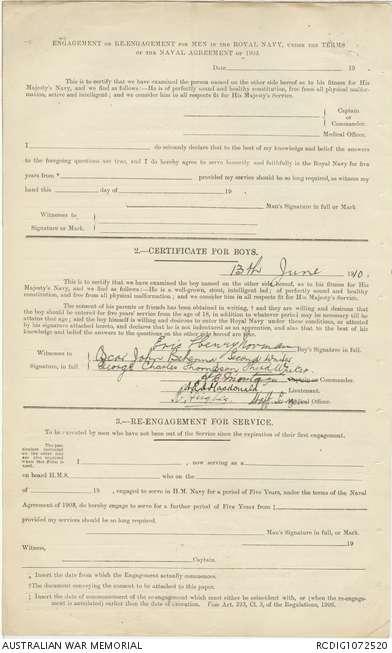 ENGAGEMENT OR RE-ENGAGEMENT FOR MEN IN THE ROYAL NAVY, UNDER THE TERMS
OF THE NAVAL AGREEMENT OF 1903.
Date 19
This is to certify that we have examined the person named on the other side hereof as to his fitness for His
Majesty's Navy, and we find as follows:—He is of perfectly sound and healthy constitution, free from all physical malfor-
mation, active and intelligent; and we consider him in all respects fit for His Majesty's Service.
Captain
or
Commander.
Medical Officer.
I do solemnly declare that to the best of my knowledge and belief the answers
to the foregoing questions are true, and I do hereby agree to serve honestly and faithfully in the Royal Navy for five
years from * provided my service should be so long required, as witness my
hand this day of 19
Man's Signature in full or Mark
Witnesses to
Signature or Mark.
2.—CERTIFICATE FOR BOYS.
13th June 1910.
This is to certify that we have examined the boy named on the other side hereof as to his fitness for His
Majesty's Navy, and we find as follows:—He is a well-grown, stout, intelligent lad; of perfectly sound and healthy
constitution, and free from all physical malformation; and we consider him in all respects fit for His Majesty's Service.
The consent of his parents or friends has been obtained in writing † and they are willing and desirous that
the boy should be entered for five years' service from the age of 18, in addition to whatever period may be necessary till he
attains that age; and the boy himself is willing and desirous to enter the Navy under these conditions, as attested
by his signature attached hereto, and declares that he is not indentured as an apprentice, and also that to the best of his
knowledge and belief the answers to the questions on the other side hereof are true.
Eric Henry Norman Boy's Signature in full.
Witnesses to Oscar John Second Writer
Signature, in full. George Charles Thompson Third Writer.
Commander.
Macdonald Lieutenant.
Hughes Staff Medical Officer.
3.—RE-ENGAGEMENT FOR SERVICE.
To be executed by men who have not been out of the Service since the expiration of their first engagement.
I , now serving as a
on board H.M.S. who on the
of 19 , engaged to serve in H.M. Navy for a period of Five Years, under the terms of the Naval
Agreement of 1903, do hereby engage to serve for a further period of Five Years from ‡
provided my services should be so long required.
Man's Signature in full, or Mark.
19
Witness,
Captain.
* Insert the date from which the Engagement actually commences.
† The document conveying the consent to be attached to this paper.
‡ Insert the date of commencement of the re-engagement which must either be coincident with, or (when the re-engage-
ment is antedated) earlier than the date of execution. Vide Art. 293, Cl. 3, of the Regulations, 1906.
AUSTRALIAN WAR MEMORIAL RCDIG1072520